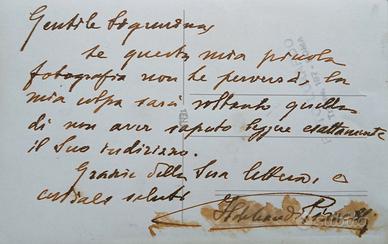 Gentile Signorina,
se questa mia piccola
fotografia non le perverrà, la
mia colpa sarà soltanto quella
di non aver saputo leggere esattamente
il Suo indirizzo.
Grazie della Sua lettera, e
cordiali saluti